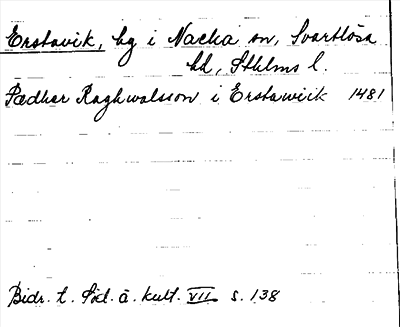 Erstavik, hg i Nacka sn, Svartlösa
hd, Sthlms l.
Pædher Raghwalsson i Erstawiik 1481
Bidr. t. Söd. ä. kult. VII s. 138